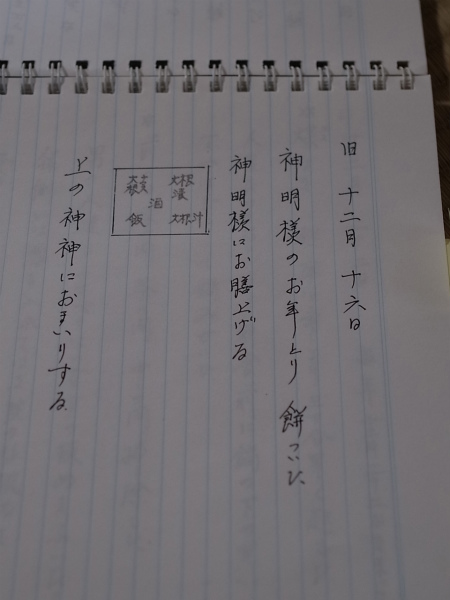 旧 十二月 十六日
神明様のお年とり 餅
神明様にお膳上げる
大根漬
酒
飯
大根汁
上の神神におまいりする